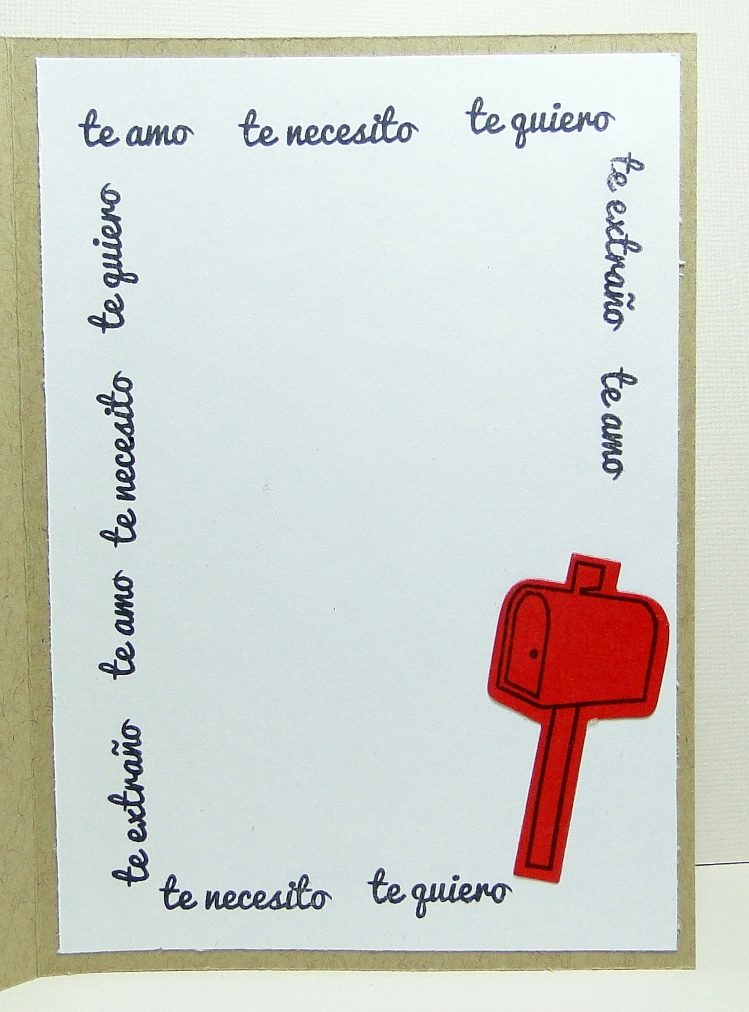 te amo te necesito te quiero
te extraño te amo
te extraño te amo te necesito te quiero
te necesito te quiero